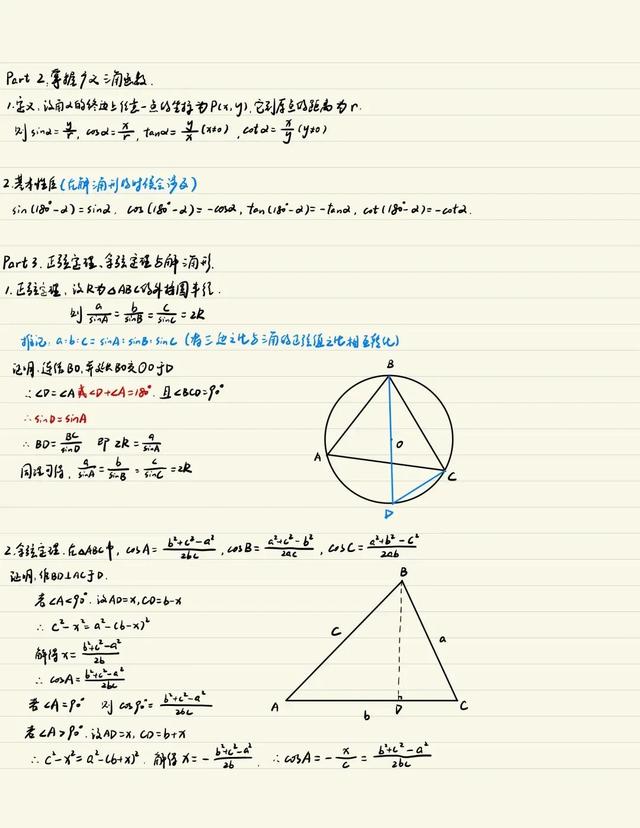 Part 2. 掌握广义三角函数.
1.定义. 设角α的终边上任意一点的坐标为P(x,y). 它到原点的距离为r.
则 sinα=y/r, cosα=x/r, tanα=y/x (x≠0), cotα=x/y (y≠0)
2.基本性质(在解三角形的时候会涉及)
sin(180°-α)=sinα. cos(180°-α)=-cosα, tan(180°-α)=-tanα, cot(180°-α)=-cotα.
Part 3. 正弦定理、余弦定理与解三角形.
1.正弦定理. 设R为△ABC的外接圆半径.
则 a/sinA = b/sinB = c/sinC = 2R
推论: a:b:c = sinA:sinB:sinC (将三边之比与三角的正弦值之比相互转化)
证明.连结BO,并延长BO交⊙O于D
∴∠D=∠A或∠D+∠A=180°. 且∠BCD=90°
∴sinD=sinA
∴BD=BC/sinD 即 2R=a/sinA
同理可得, a/sinA = b/sinB = c/sinC = 2R
B
O
A
C
D
2.余弦定理.在△ABC中, cosA=(b²+c²-a²)/2bc, cosB=(a²+c²-b²)/2ac, cosC=(a²+b²-c²)/2ab
证明.作BD⊥AC于D.
若∠A<90°. 设AD=x,CD=b-x
∴c²-x²=a²-(b-x)²
解得x=(b²+c²-a²)/2b
∴cosA=(b²+c²-a²)/2bc
若∠A=90° 则 cos90°=(b²+c²-a²)/2bc
若∠A>90°. 设AD=x, CD=b+x
∴c²-x²=a²-(b+x)². 解得x=-(b²+c²-a²)/2b. ∴cosA=-x/c=(b²+c²-a²)/2bc
B
c
a
A
D
C
b